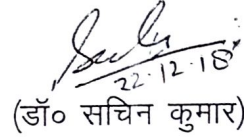 22.12.18
(डॉ० सचिन कुमार)